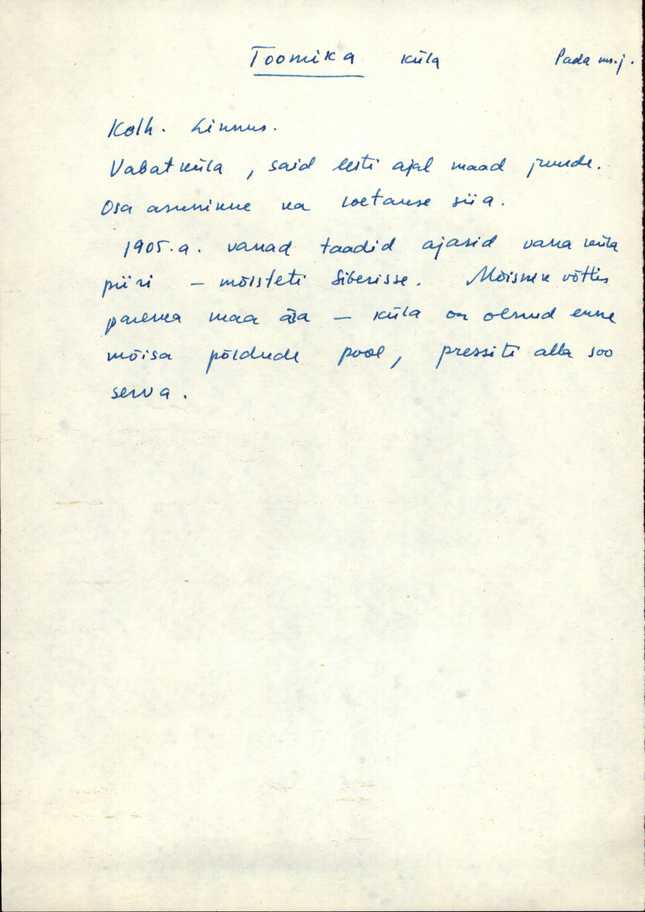 Toomika küla Pada ms.j.
Kolh. Linnus.
Vabatküla, said eesti ajal maad juurde.
Osa asunikke ka loetakse siia.
1905.a. vanad taadid ajasid vana küla
piiri – mõisteti Siberisse. Mõisnik võttis
parema maa ära – küla on olnud enne
mõisa põldude pool, pressiti alla soo
serva.